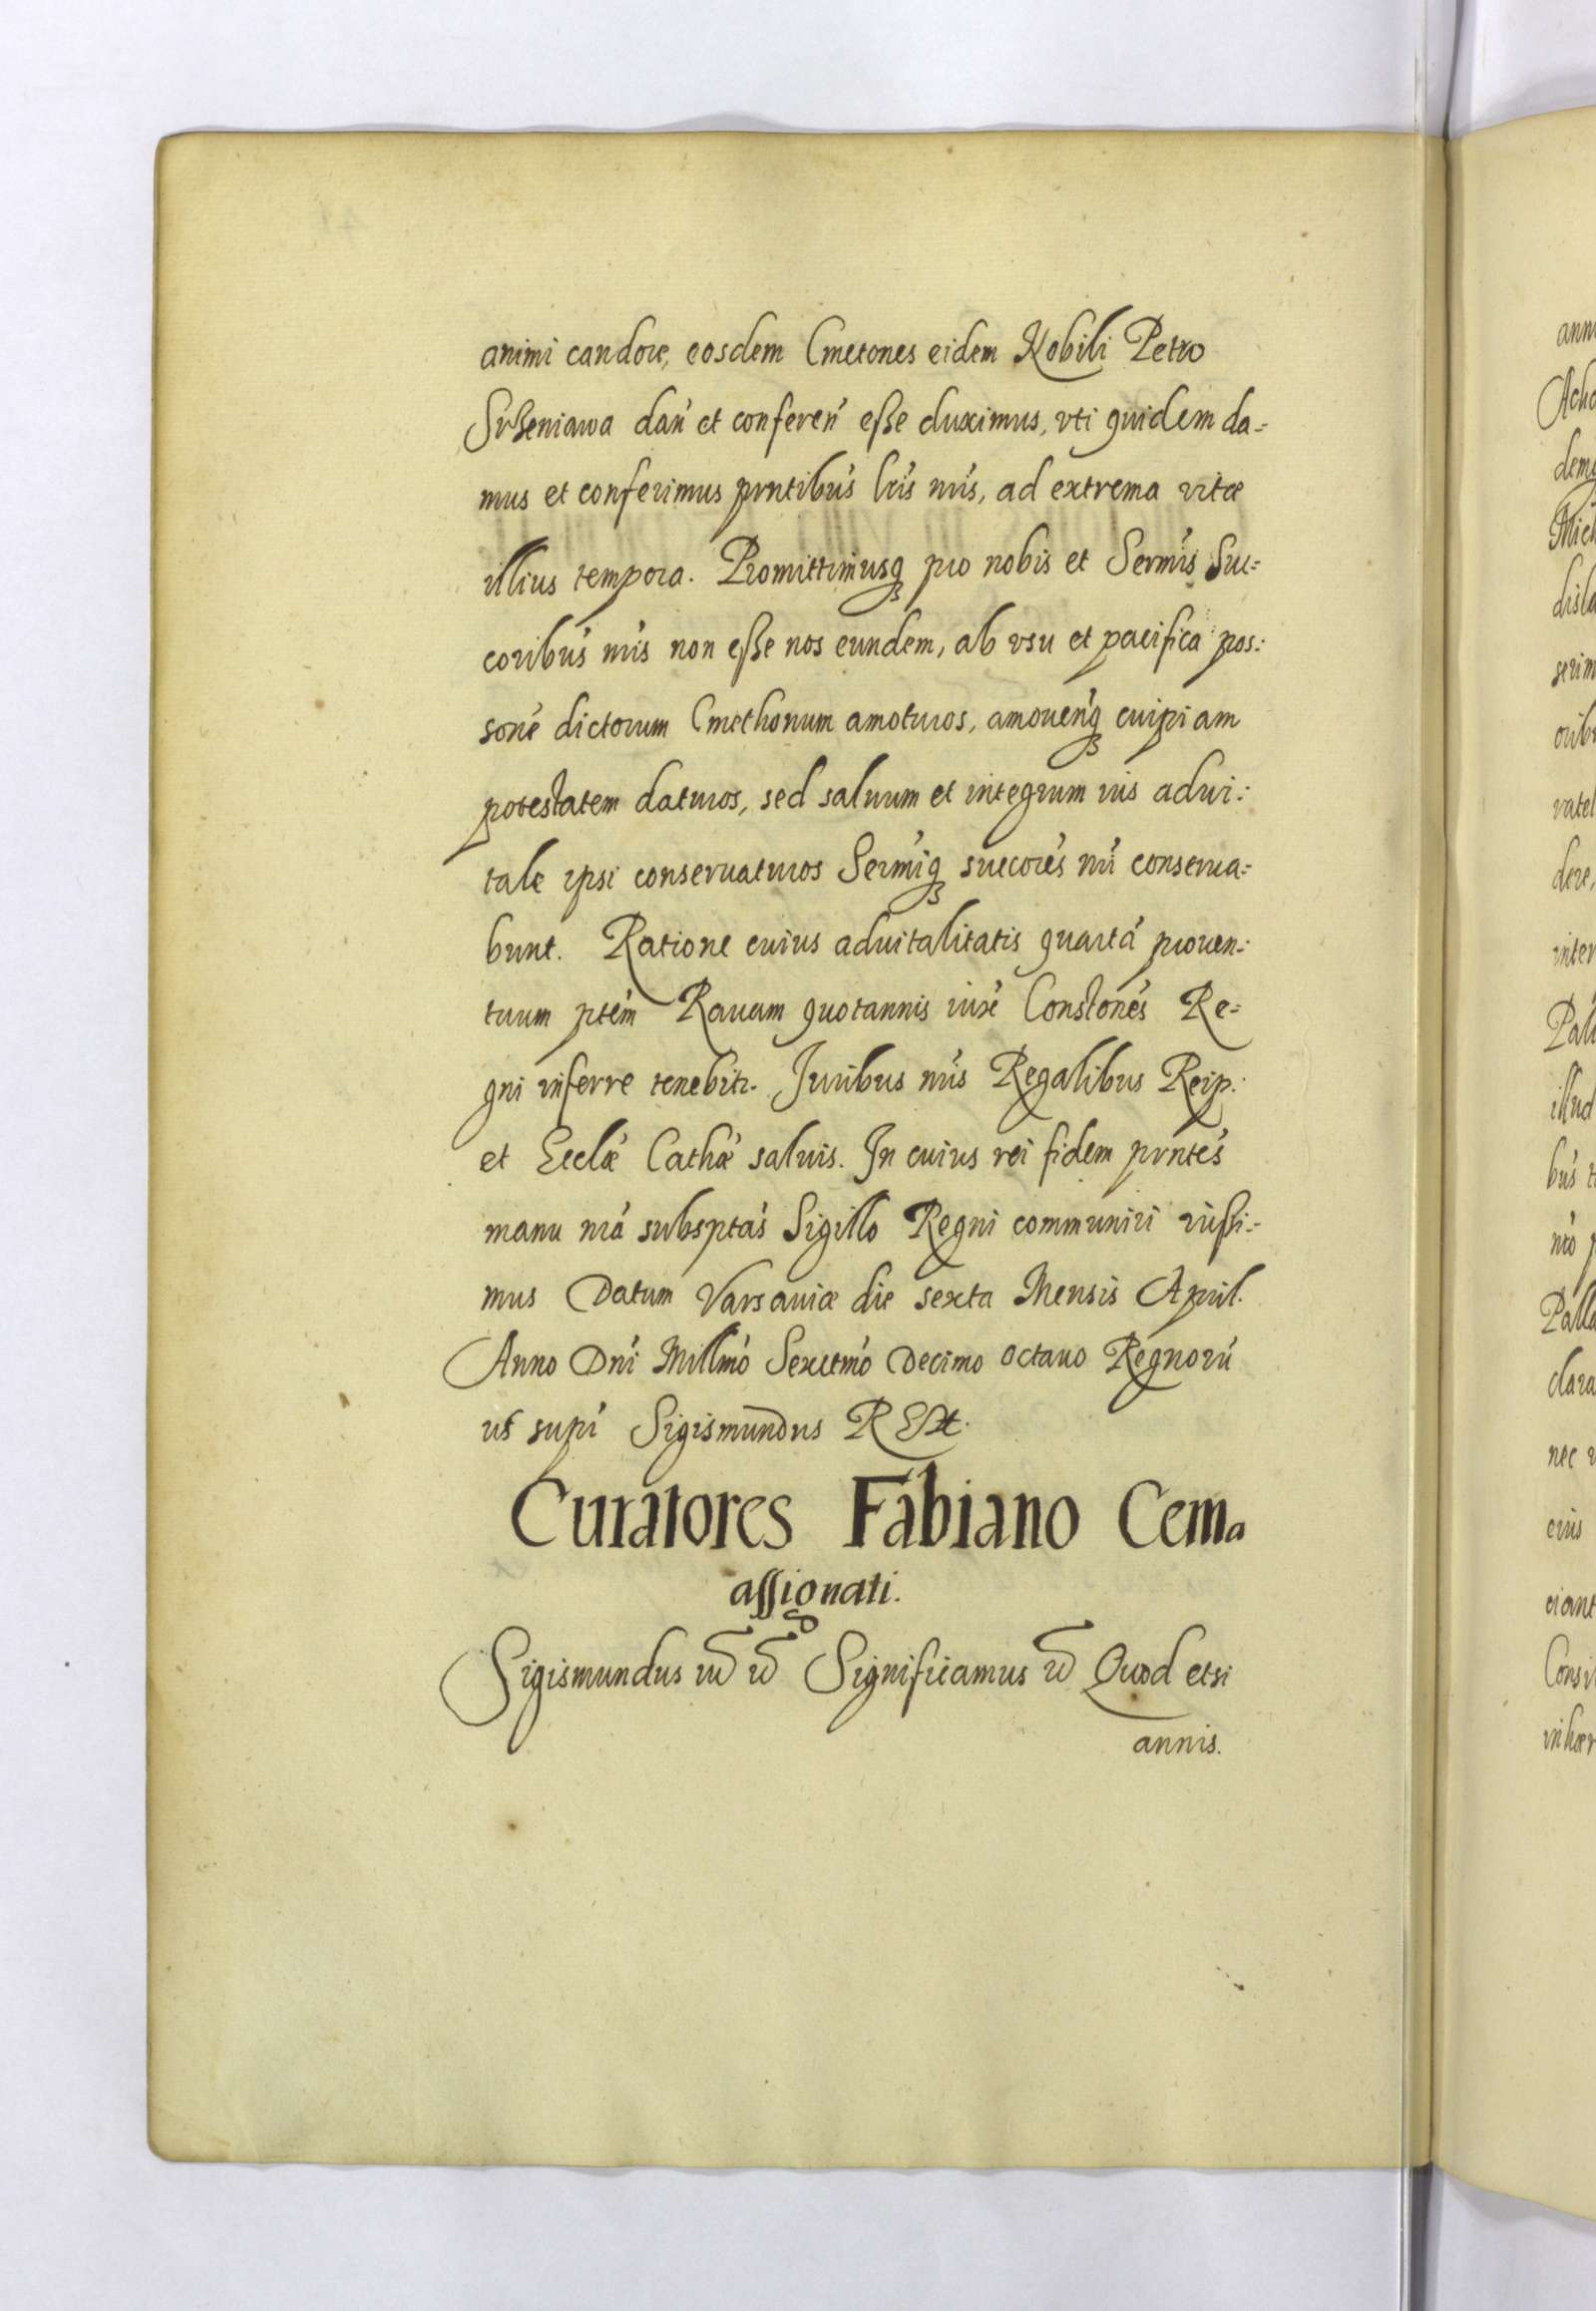 animi candore, eosdem Cmetones eidem Nobili Petro
Srzeniawa dań et confereń eße duximus, vti quidem da=
mus et conferimus pntibús lris nris, ad extrema vitæ
illius tempora. Promittimusq pro nobis et Sermis Suc=
coribús nris non eße nos eundem, ab vsu et pacifica pos:
soné dictorum Cmethonum amoturos, amouenq cuipiam
potestatem daturos, sed saluum et integrum ius advi:
tale ipsi conseruaturos Sermiq succorés nri conserua=
bunt. Ratione cuius aduitalitatis quartá prouen:
tuum ptém Rauam quotannis iuxé Constonés Re=
gni inferre tenebitr. Juribus nris Regalibus Reip:
et Ecclæ Cathæ saluis. In cuius rei fidem prntés
manu nrá subsptás Sigillo Regni communiri iußi=
mus Datum Varsauiæ die sexta Mensis April.
Anno Dni Millmó Sexcetmó Decimo octauo Regnorú
ut supr Sigismundus REX.
Curatores Fabiano Cema
assignati.
Sigismundus Significamus Quod etsi
annis.